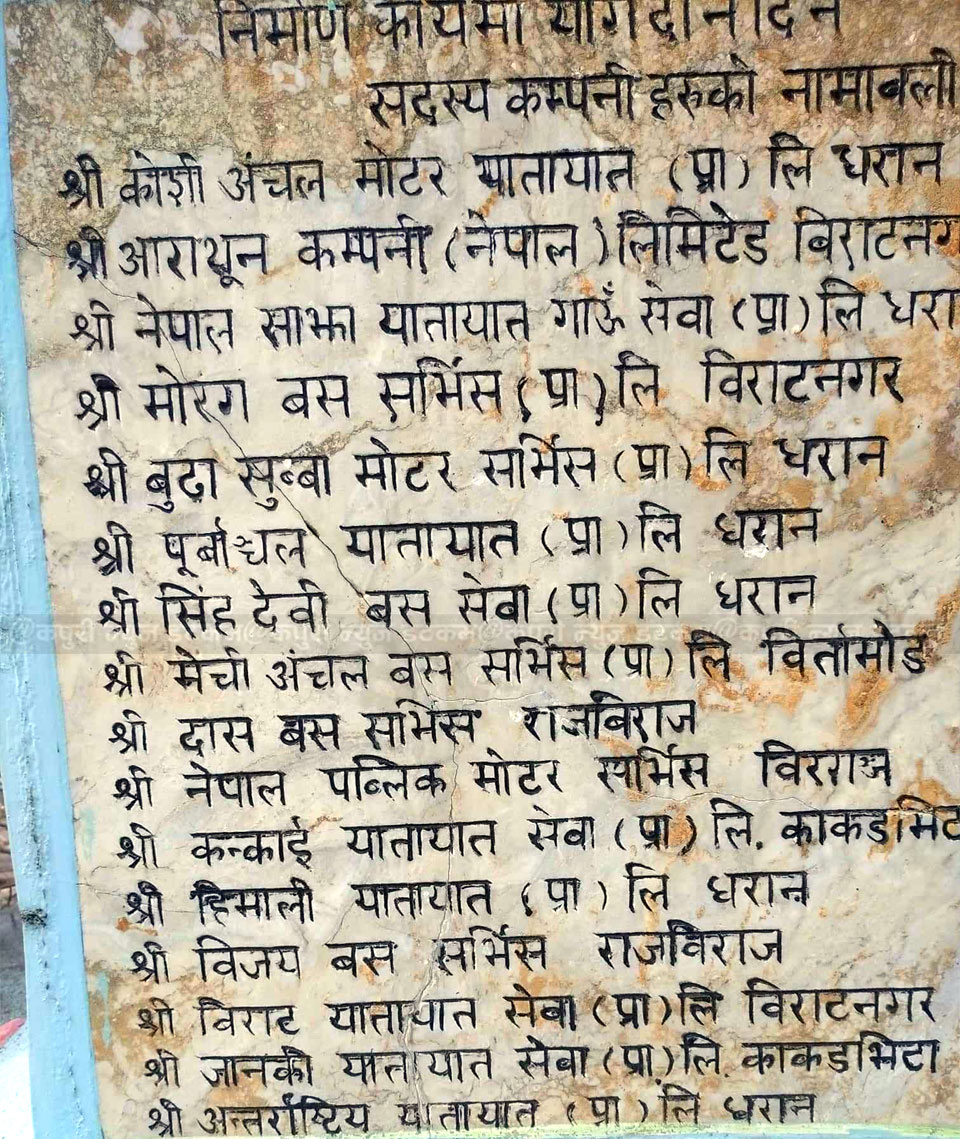 निर्माण कार्यमा योगदान दिने
सदस्य कम्पनी हरुको नामावली
श्री कोशी अंचल मोटर यातायात (प्रा) लि धरान
श्री आराथून कम्पनी (नेपाल) लिमिटेड विराटनग
श्री नेपाल साझा यातायात गाऊँ सेवा (प्रा) लि धरा
श्री मोरंग बस सर्भिस (प्रा) लि विराटनगर
श्री बुढा सुब्बा मोटर सर्भिस (प्रा) लि धरान
श्री पूर्वाञ्चल यातायात (प्रा) लि धरान
श्री सिंह देवी बस सेवा (प्रा) लि धरान
श्री मेची अंचल बस सर्भिस (प्रा) लि विर्तामोड
श्री दास बस सर्भिस राजविराज
श्री नेपाल पब्लिक मोटर सर्भिस
श्री कन्काई यातायात सेवा (प्रा) लि. काकडभिट
श्री हिमाली यातायात (प्रा) लि धरान
श्री विजय बस सर्भिस राजविराज
श्री विराट यातायात सेवा (प्रा) लि विराटनगर
श्री जानकी यातायात सेवा (प्रा) लि. काकडभिटा
श्री अन्तर्राष्टिय यातायात (प्रा) लि धरान